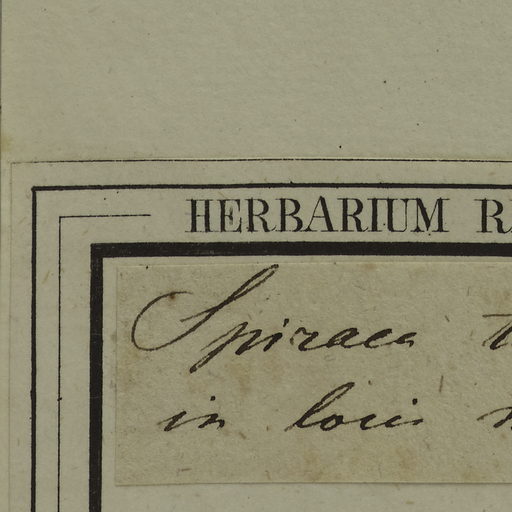 HERBARIUM
Spiraea
in locis